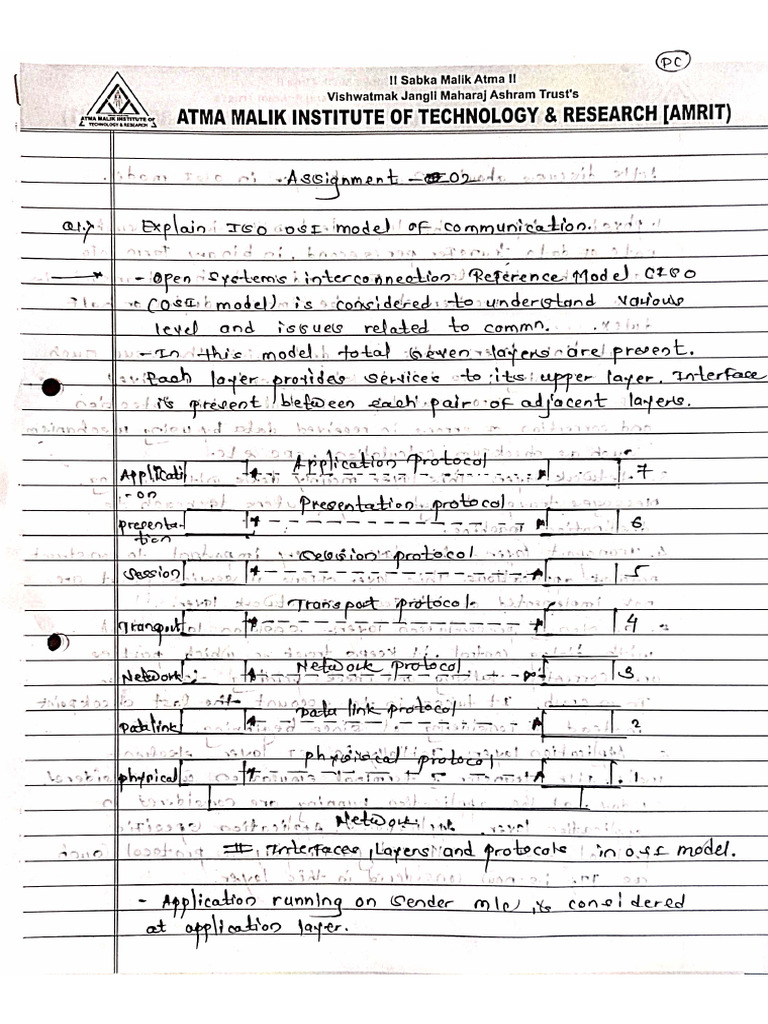 PC
!! Sabka Malik Atma !!
Vishwatmak Jangli Maharaj Ashram Trust's
ATMA MALIK INSTITUTE OF TECHNOLOGY & RESEARCH [AMRIT]
ATMA MALIK INSTITUTE OF
TECHNOLOGY & RESEARCH
Assignment - 02
Q1.> Explain ISO OSI model of communication.
- Open Systems interconnection Reference Model CISO
(OSI model) is considered to understand various
level and issues related to commn.
- In this model total seven layers are present.
Each layer provides services to its upper layer. Interface
is present between each pair of adjacent layers.
Applicati Application Protocol 7
-on
Presentation protocol
presenta- 6
tion
Session protocol
Session 5
Transport protocol
Transport 4
Network protocol
Network 3
Data link protocol
Data link 2
physical protocol
physical 1
Network
Interfaces, Layers and protocols in OSI model.
- Application running on sender m/c, is considered
at application layer.